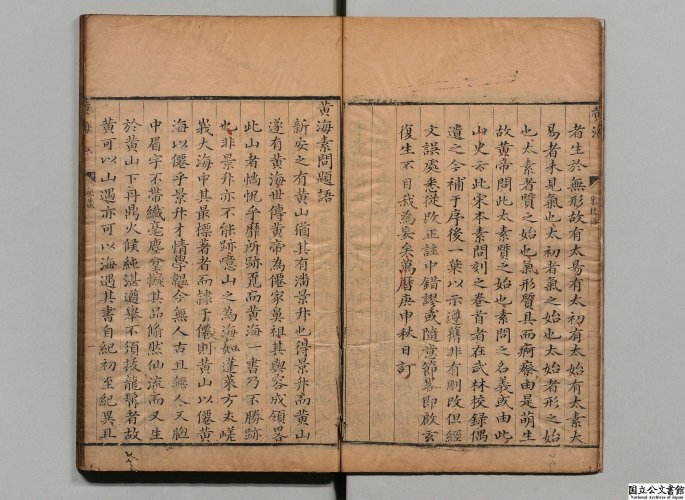 者生於無形故有太易有太初有太始有太素太
易者未見氣也太初者氣之始也太始者形之始
也太素者質之始也氣形質具而痾瘵由是萌生
故黃帝問此太素質之始也素問之名義或由此
山史云此宋本素問刻之卷首者在武林校録偶
遺之今補于序後一葉以示遵舊非有刪改但經
文誤處悉從改正註中錯謬或隨意節畧即啟玄
復生不目我為妄矣萬曆庚申秋日訂
黃海素問題語
新安之有黃山猶其有潘景升也得景升而黃山
遂有黃海世傳黃帝為僊家鼻祖其與容成領畧
此山者惝怳乎靡所跡覓而黃海一書乃不勝跡
也非景升亦不能跡噫山之為海如蓬萊方丈嵯
峩大海中其最標著者而隸于僊則黃山以僊黃
海以僊乎景升才情學韞今無人古且無人天胞
中眉宇不帶纖毫塵坌擬其品翛然仙流而又生
於黃山下再鼎火候純湛適舉不須拔龍髯者故
黃可以山遇亦可以海遇其書自紀初至紀異且
黃海
一
国立公文書館
National Archives of Japan